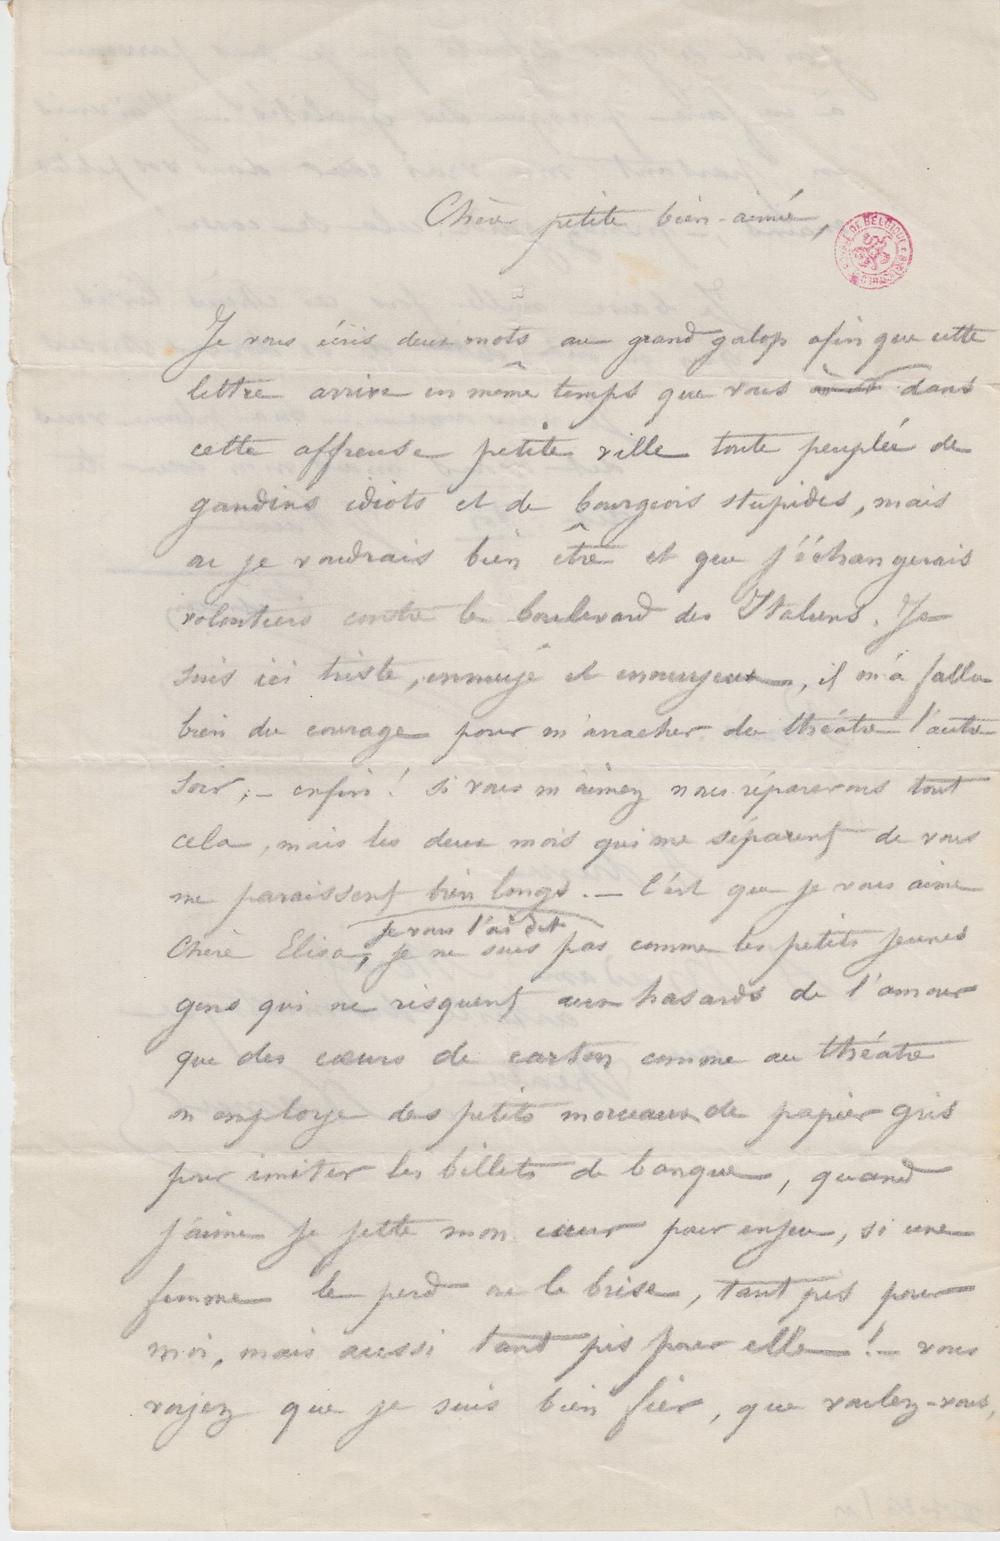 Chère petite bien-aimée,
Je vous écris deux mots au grand galop afin que cette
lettre arrive en même temps que vous dans
cette affreuse petite ville toute peuplée de
gandins idiots et de bourgeois stupides, mais
ou je voudrais bien être et que j'échangerais
volontiers contre le boulevard des Italiens. Je
suis ici triste, ennuyé et ennuyeux, il m'a fallu
bien du courage pour m'arracher du théâtre l'autre
soir, – enfin! si vous m'aimez nous réparerons tout
cela, mais les deux mois qui me séparent de vous
me paraissent bien longs. – C'est que je vous aime
Chère Elisa, je vous l'ai dit je ne suis pas comme les petits jeunes
gens qui ne risquent aux hasards de l'amour
que des cœurs de carton comme au théâtre
on employe des petits morceaux de papier gris
pour imiter les billets de banque, quand
j'aime je jette mon cœur pour enjeu, si une
femme le perd ou le brise, tant pis pour
moi, mais aussi tant pis pour elle! – vous
voyez que je suis bien fier, que voulez-vous,